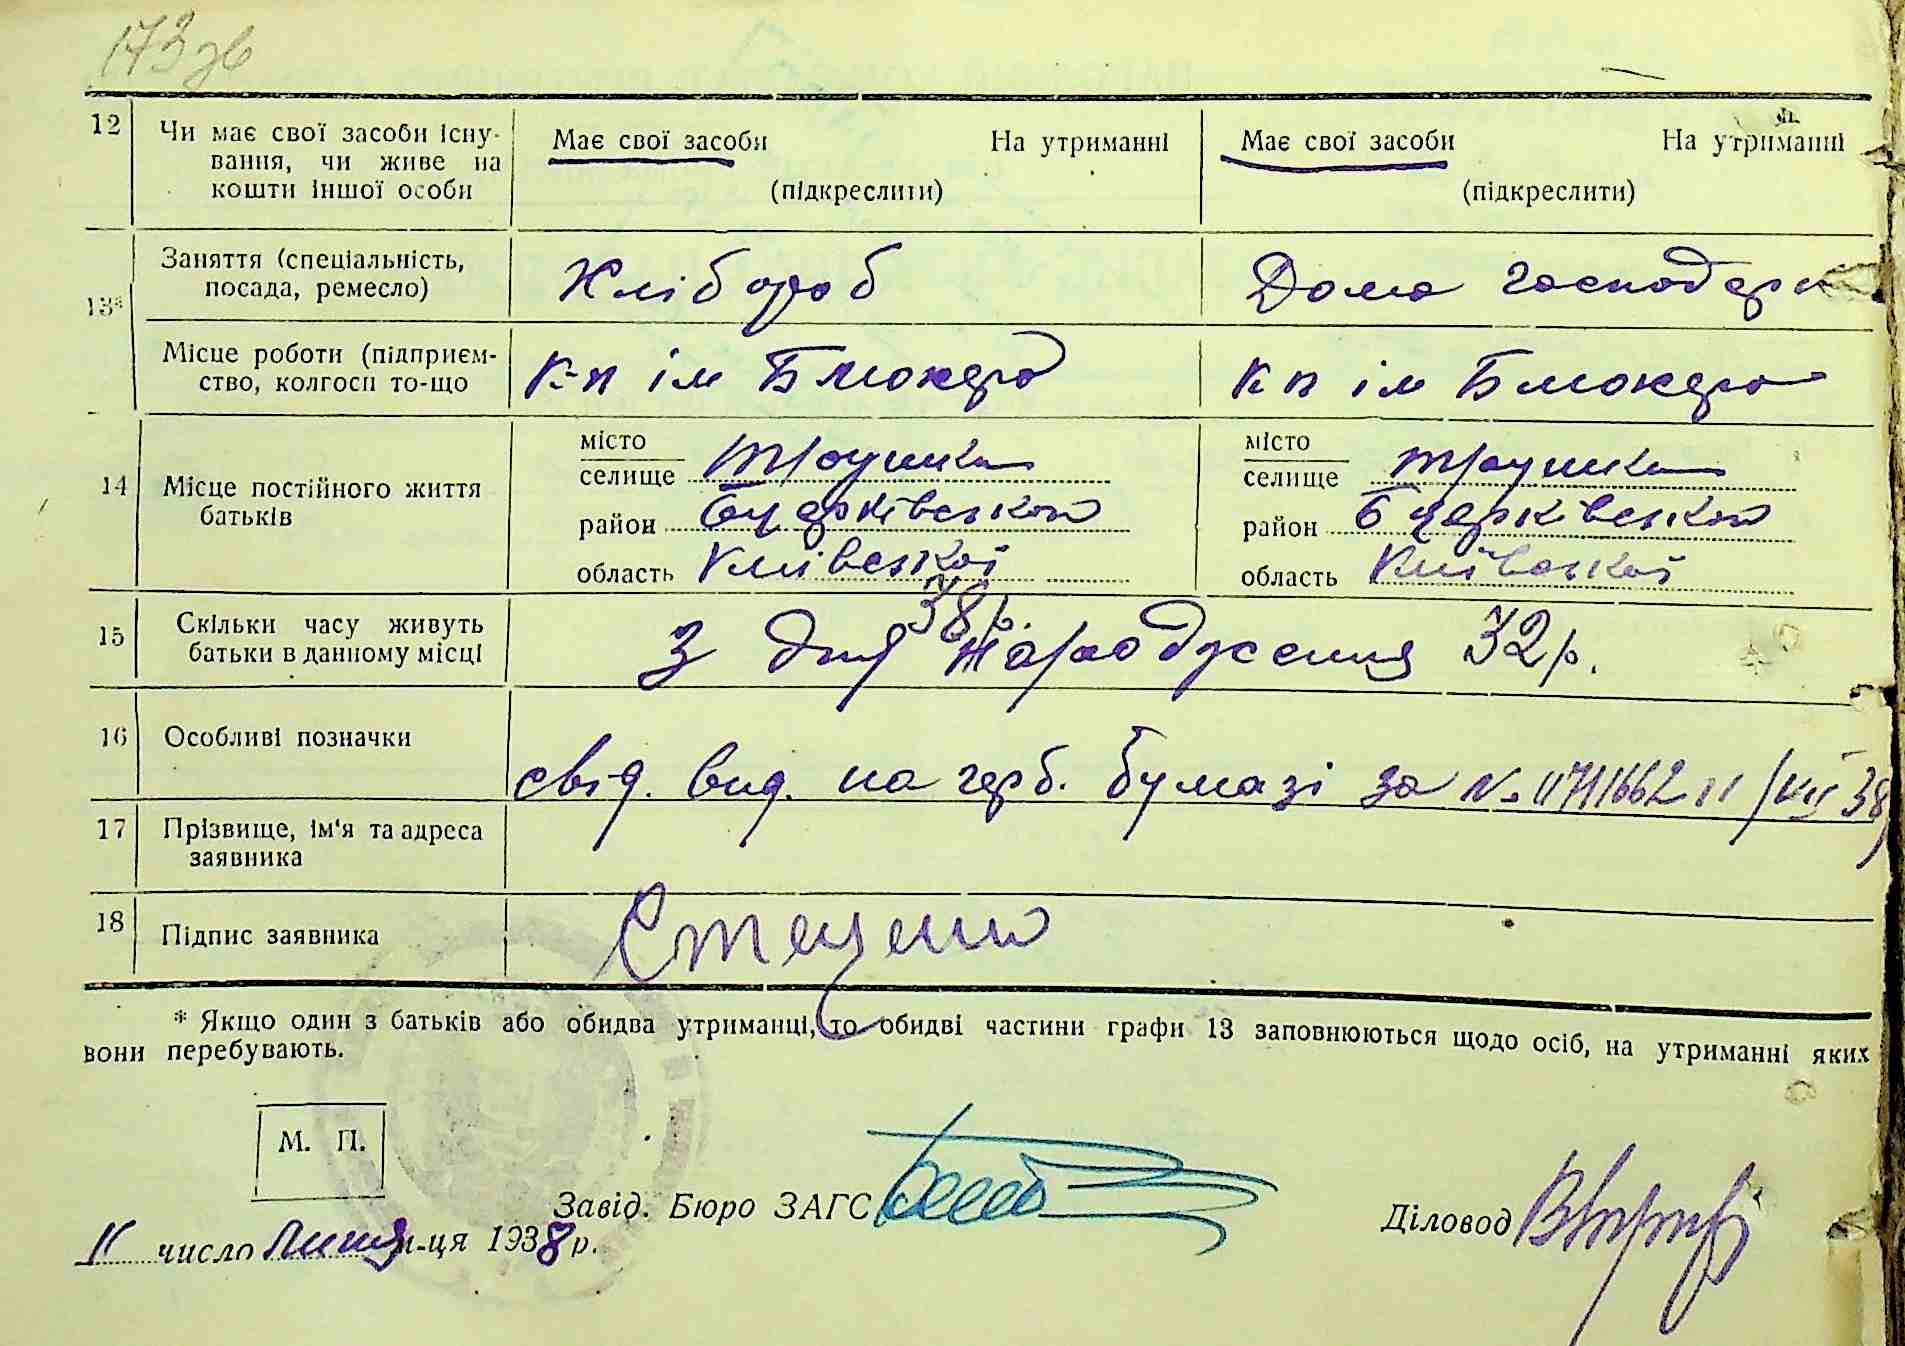 173 зв
12 Чи має свої засоби існу-
вання, чи живе на
кошти іншої особи
Має свої засоби На утриманні
(підкреслити)
Має свої засоби На утриманні
(підкреслити)
13*
Заняття (спеціальність,
посада, ремесло)
Хлібороб
Дома господарка
Місце роботи (підприєм-
ство, колгосп то-що
К-п ім Блюхера
Кп ім Блюхера
14 Місце постійного життя
батьків
місто
селище Трушки
район Бцерківської
область Київської
місто
селище Трушки
район Бцерківської
область Київської
15 Скільки часу живуть
батьки в данному місці
38р.
З дня народження 32р.
16 Особливі позначки
свід. вид. на герб. бумазі за № 11/VII 38
17 Прізвище, ім'я та адреса
заявника
18 Підпис заявника
Стеценко
* Якщо один з батьків або обидва утриманці, то обидві частини графи 13 заповнюються щодо осіб, на утриманні яких
вони перебувають.
М. П.
Завід. Бюро ЗАГС
Діловод
11 число Липня м-ця 1938 р.